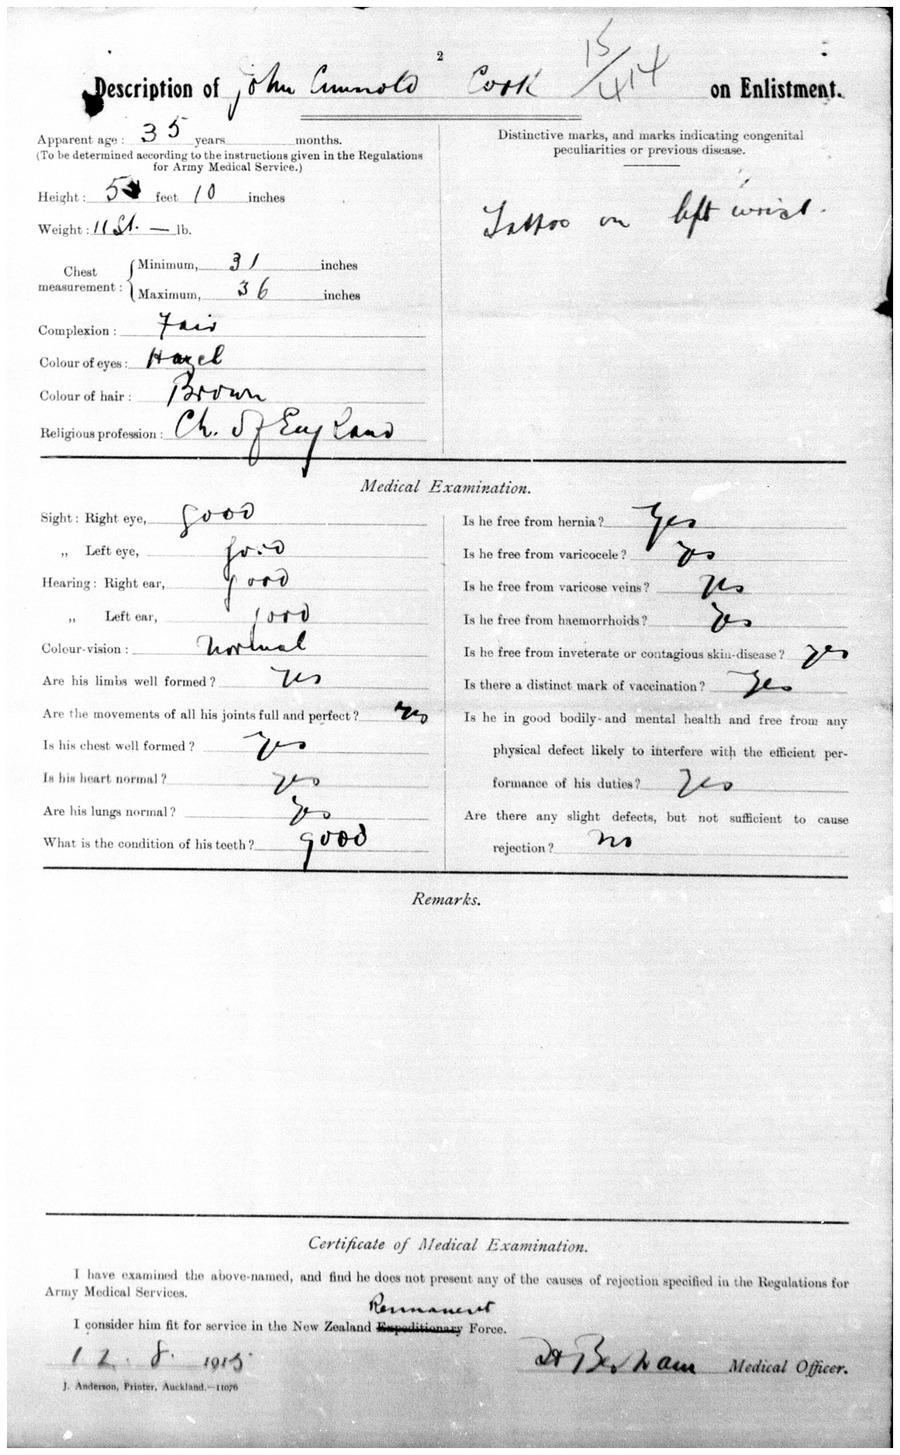 2
Description of John Cook 15/414 on Enlistment.
Apparent age : 35 years months.
(To be determined according to the instructions given in the Regulations
for Army Medical Service.)
Height : 5 feet 10 inches
Weight : 11 St. — lb.
Chest measurement : Minimum, 31 inches
Maximum, 36 inches
Complexion : Fair
Colour of eyes : Hazel
Colour of hair : Brown
Religious profession : Ch. of England
Distinctive marks, and marks indicating congenital
peculiarities or previous disease.
Tattoo on left wrist.
Medical Examination.
Sight : Right eye, good
„ Left eye, good
Hearing : Right ear, good
„ Left ear, good
Colour-vision : Normal
Are his limbs well formed ? yes
Are the movements of all his joints full and perfect ? yes
Is his chest well formed ? yes
Is his heart normal ? yes
Are his lungs normal ? yes
What is the condition of his teeth ? good
Is he free from hernia ? Yes
Is he free from varicocele ? yes
Is he free from varicose veins ? yes
Is he free from haemorrhoids ? yes
Is he free from inveterate or contagious skin-disease ? yes
Is there a distinct mark of vaccination ? yes
Is he in good bodily and mental health and free from any
physical defect likely to interfere with the efficient per-
formance of his duties ? yes
Are there any slight defects, but not sufficient to cause
rejection ? no
Remarks.
Certificate of Medical Examination.
I have examined the above-named, and find he does not present any of the causes of rejection specified in the Regulations for
Army Medical Services.
Permanent
I consider him fit for service in the New Zealand Expeditionary Force.
12. 8. 1915 Medical Officer.
J. Anderson, Printer, Auckland.—11076